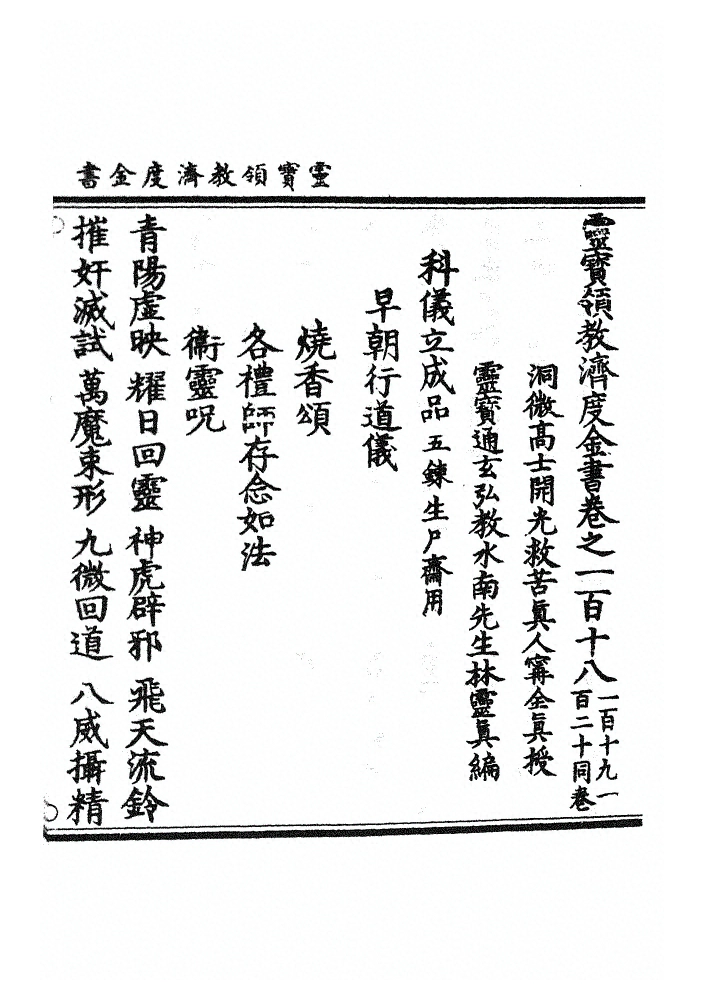 靈寶領教濟度金書
靈寶領教濟度金書卷之一百十八 一百十九一百二十同卷
洞微高士開光救苦眞人甯全眞授
靈寶通玄弘教水南先生林靈眞編
科儀立成品 五鍊生尸齋用
早朝行道儀
燒香頌
各禮師存念如法
衞靈呪
青陽虛映 耀日回靈 神虎辟邪 飛天流鈴
摧奸滅試 萬魔束形 九微回道 八威攝精